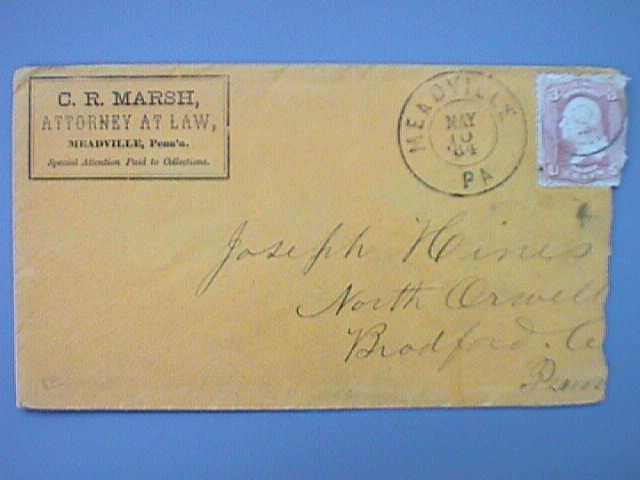 C. R. MARSH,
ATTORNEY AT LAW,
MEADVILLE, Penn'a.
Special Attention Paid to Collections.
MEADVILLE
MAY
10
'64
PA
3 3
U
Joseph Hines
North Orwell
Bradford. Co
Penn